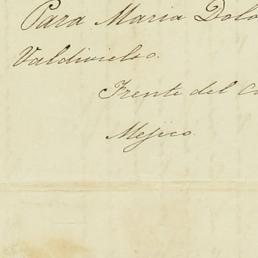 Para Maria Dolo
Valdivielso.
Frente del C
Mejico.